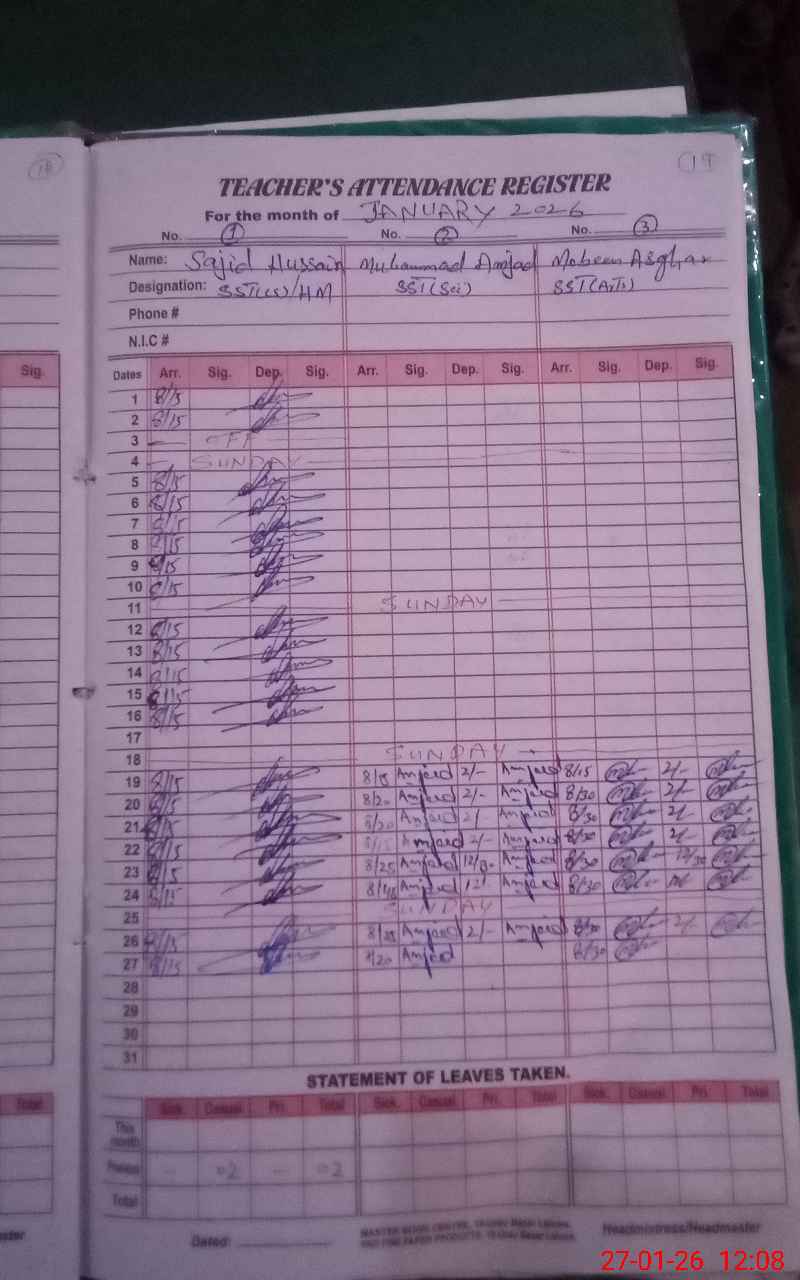 18
19
TEACHER'S ATTENDANCE REGISTER
For the month of JANUARY 2026
No. 1 No. 2 No. 3
Name: Sajid Hussain Muhammad Amjad Mobeen Asghar
Designation: SST(CS)/HM SST(Sci) SST(Arts)
Phone #
N.I.C #
Sig. Dates Arr. Sig. Dep. Sig. Arr. Sig. Dep. Sig. Arr. Sig. Dep. Sig.
1 8/15
2 8/15
3 OFF
4 SUNDAY
5 8/15
6 8/15
7 8/15
8 8/15
9 8/15
10 8/15
11 SUNDAY
12 8/15
13 8/15
14 8/15
15 8/15
16 8/15
17
18 SUNDAY
19 8/15 8/15 Amjad 2/- Amjad 8/15 2/-
20 8/15 8/20 Amjad 2/- Amjad 8/30 2/-
21 8/15 8/20 Amjad 2/ Amjad 8/30 2/
22 8/15 8/15 Amjad 2/- Amjad 8/30 2/-
23 8/15 8/25 Amjad 12/30 Amjad 8/30 12/30
24 8/15 Amjad 12/ Amjad 8/30
25 SUNDAY
26 8/15 Amjad 2/- Amjad 8/30 2/
27 8/15 8/20 Amjad 8/30
28
29
30
31
STATEMENT OF LEAVES TAKEN.
Total Sick. Casual Pri. Total Sick. Casual Pri. Total Sick. Casual Pri. Total
This month
Previous - 02 - 02
Total
Dated: Headmistress/Headmaster
27-01-26 12:08